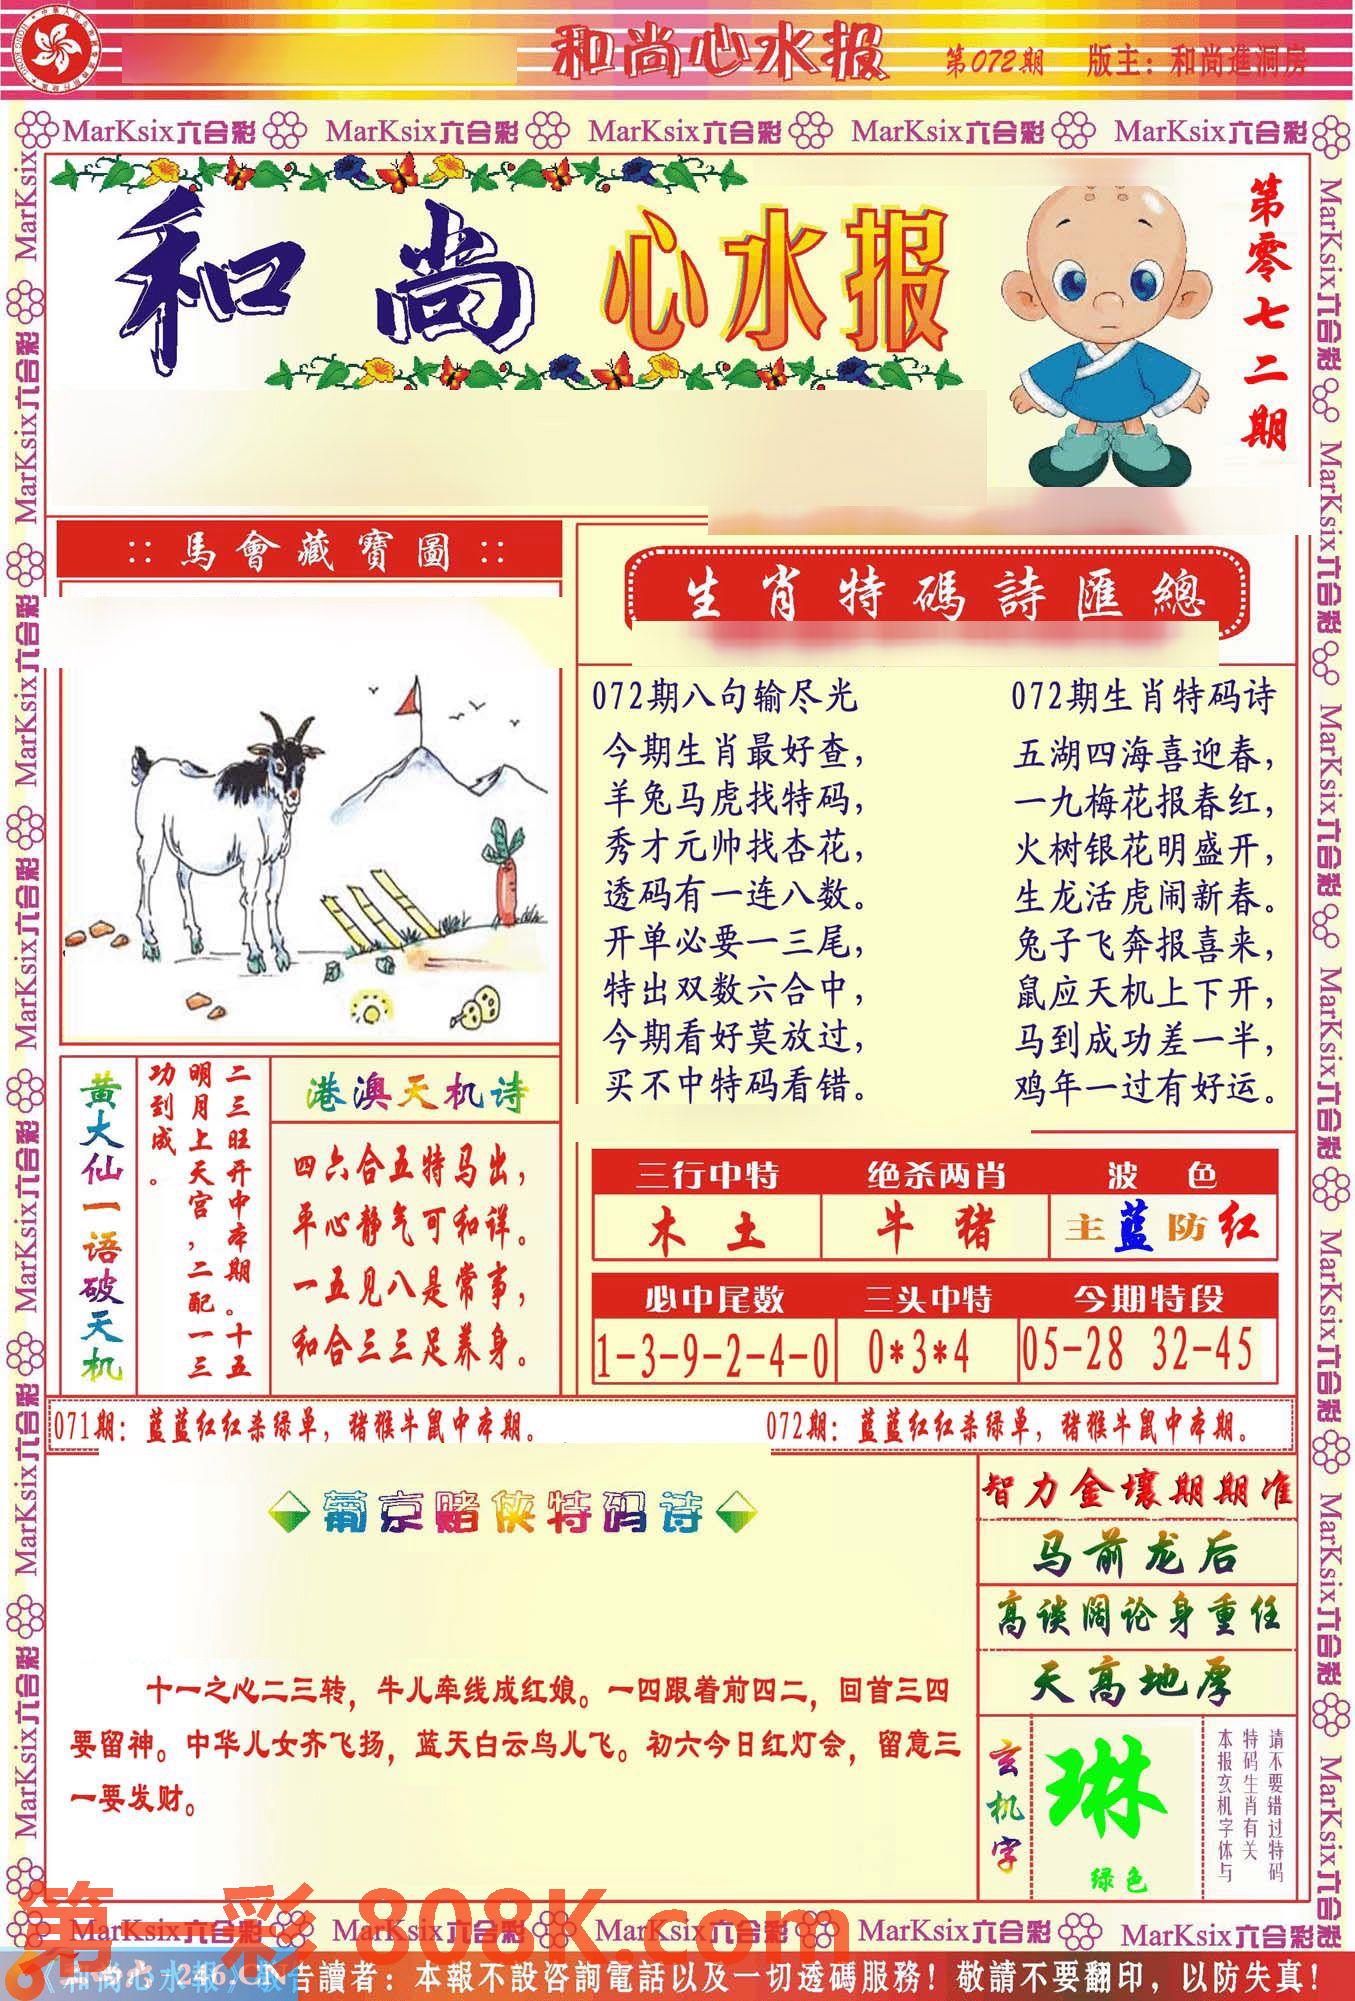 和尚心水报 第072期 版主：和尚進洞房
MarKsix六合彩 MarKsix六合彩 MarKsix六合彩 MarKsix六合彩 MarKsix六合彩
和尚心水报
第零七二期
::馬會藏寶圖::
生肖特碼詩匯總
072期八句输尽光
今期生肖最好查，
羊兔马虎找特码，
秀才元帅找杏花，
透码有一连八数。
开单必要一三尾，
特出双数六合中，
今期看好莫放过，
买不中特码看错。
072期生肖特码诗
五湖四海喜迎春，
一九梅花报春红，
火树银花明盛开，
生龙活虎闹新春。
兔子飞奔报喜来，
鼠应天机上下开，
马到成功差一半，
鸡年一过有好运。
黄大仙一语破天机
二三旺开中本期。十五
明月上天宫，二配一三
功到成。
港澳天机诗
四六合五特马出，
平心静气可和详。
一五见八是常事，
和合三三足养身。
三行中特 绝杀两肖 波色
木土 牛猪 主蓝防红
必中尾数 三头中特 今期特段
1-3-9-2-4-0 0*3*4 05-28 32-45
071期：蓝蓝红红杀绿单，猪猴牛鼠中本期。
072期：蓝蓝红红杀绿单，猪猴牛鼠中本期。
葡京赌侠特码诗
十一之心二三转，牛儿牵线成红娘。一四跟着前四二，回首三四
要留神。中华儿女齐飞扬，蓝天白云鸟儿飞。初六今日红灯会，留意三
一要发财。
智力金壤期期准
马前龙后
高谈阔论身重任
天高地厚
玄机字
琳
绿色
请不要错过特码
特码生肖有关
本报玄机字体与
MarKsix六合彩 MarKsix六合彩 MarKsix六合彩 MarKsix六合彩 MarKsix六合彩
第一彩 808K.com
246.CN
《和尚心水報》敬告讀者：本報不設咨詢電話以及一切透碼服務！敬請不要翻印，以防失真！